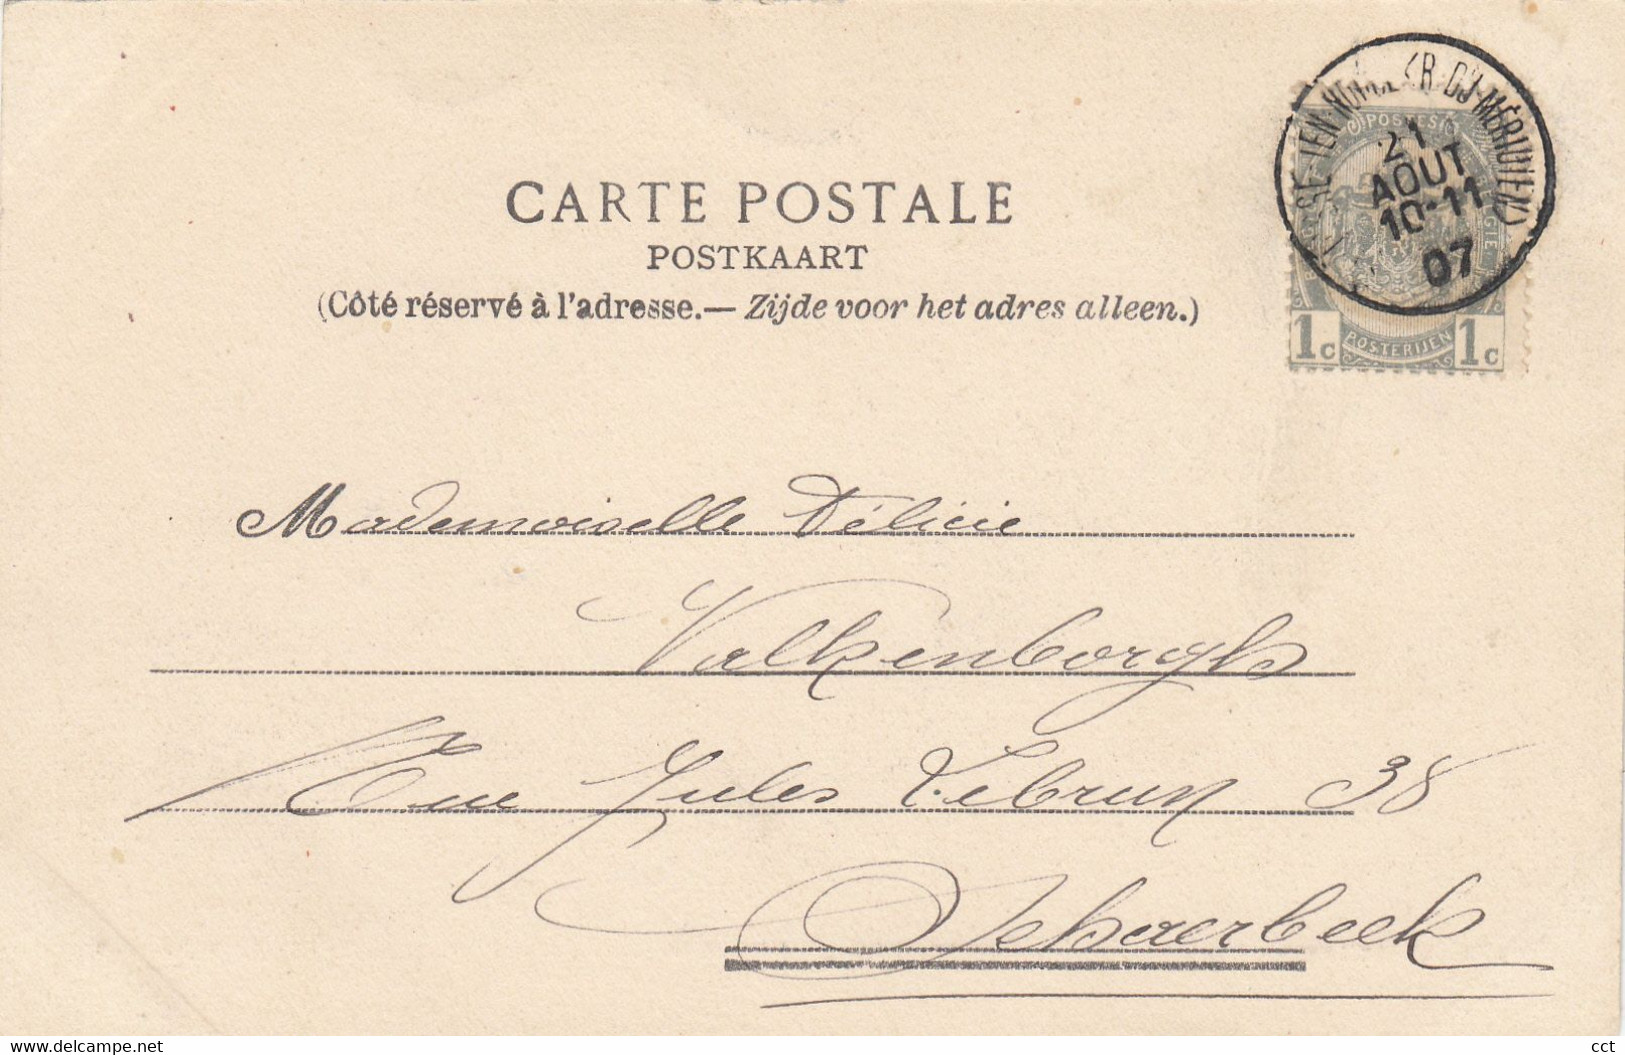 CARTE POSTALE
POSTKAART
(Côté réservé à l'adresse.— Zijde voor het adres alleen.)
POSTES
BELGIE
1c POSTERIJEN 1c
(R. DU MÉRIDIEN)
21
AOUT
10-11
07
Mademoiselle Félicie
Valkenborgh
Rue Jules Lebrun 38
Schaerbeek
delcampe.net
cct